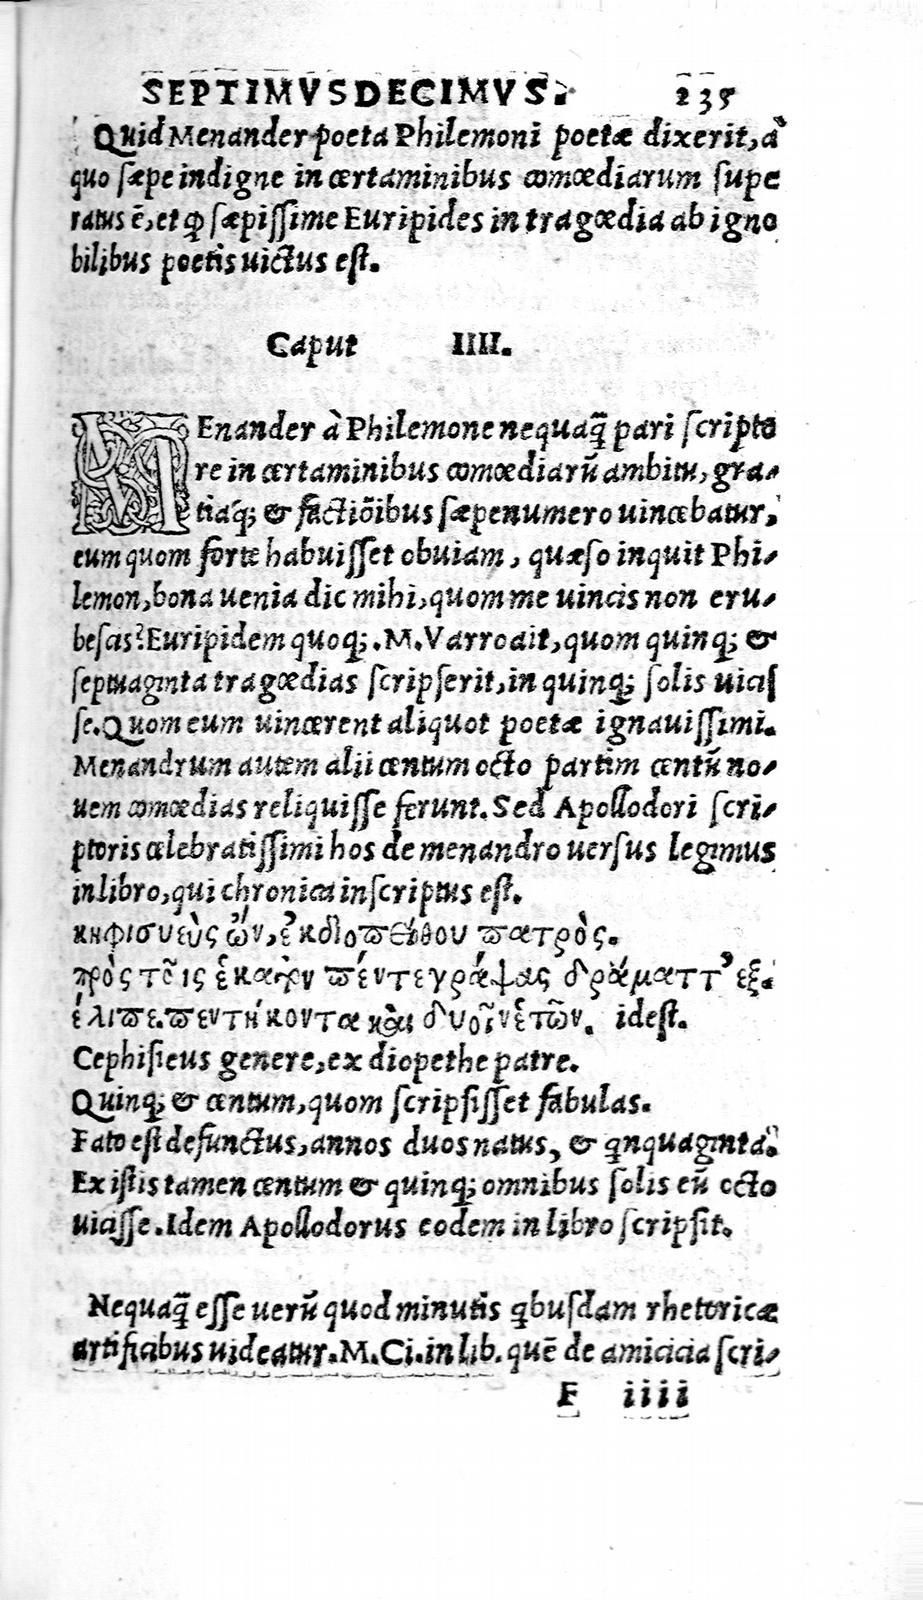 SEPTIMVSDECIMVS. 235
Quid Menander poeta Philemoni poetæ dixerit, à
quo sæpe indigne in certaminibus comœdiarum supe
ratus ē, et ꝙ sæpissime Euripides in tragœdia ab igno
bilibus poetis uictus est.
Caput IIII.
MEnander à Philemone nequaq̄ pari scripto
re in certaminibus comœdiarū ambitu, gra-
tiaq; & factiōibus sæpenumero uincebatur,
eum quom forte habuisset obuiam, quæso inquit Phi-
lemon, bona uenia dic mihi, quom me uincis non eru-
bescis? Euripidem quoq; .M. Varro ait, quom quinq; &
septuaginta tragœdias scripserit, in quinq; solis uicis
se. Quom eum uincerent aliquot poetæ ignauissimi.
Menandrum autem alii centum octo partim centū no-
uem comœdias reliquisse ferunt. Sed Apollodori scri-
ptoris celebratissimi hos de menandro uersus legimus
in libro, qui chronica inscriptus est.
κηφισυεὺς ὢν, ἐκ διοπείθου πατρὸς.
πρὸς τοῖς ἑκατὸν πέντε γράψας δράματτ' ἐξ.
έλιπε. πεντήκοντα καὶ δυοῖν ἐτῶν. idest.
Cephisieus genere, ex diopethe patre.
Quinq; & centum, quom scripsisset fabulas.
Fato est defunctus, annos duos natus, & qnquaginta.
Ex istis tamen centum & quinq; omnibus solis eū octo
uicisse. Idem Apollodorus eodem in libro scripsit.
Nequaq̄ esse uerū quod minutis qbusdam rhetoricæ
artificibus uideatur. M. Ci. in lib. quē de amicicia scri-
F iiii